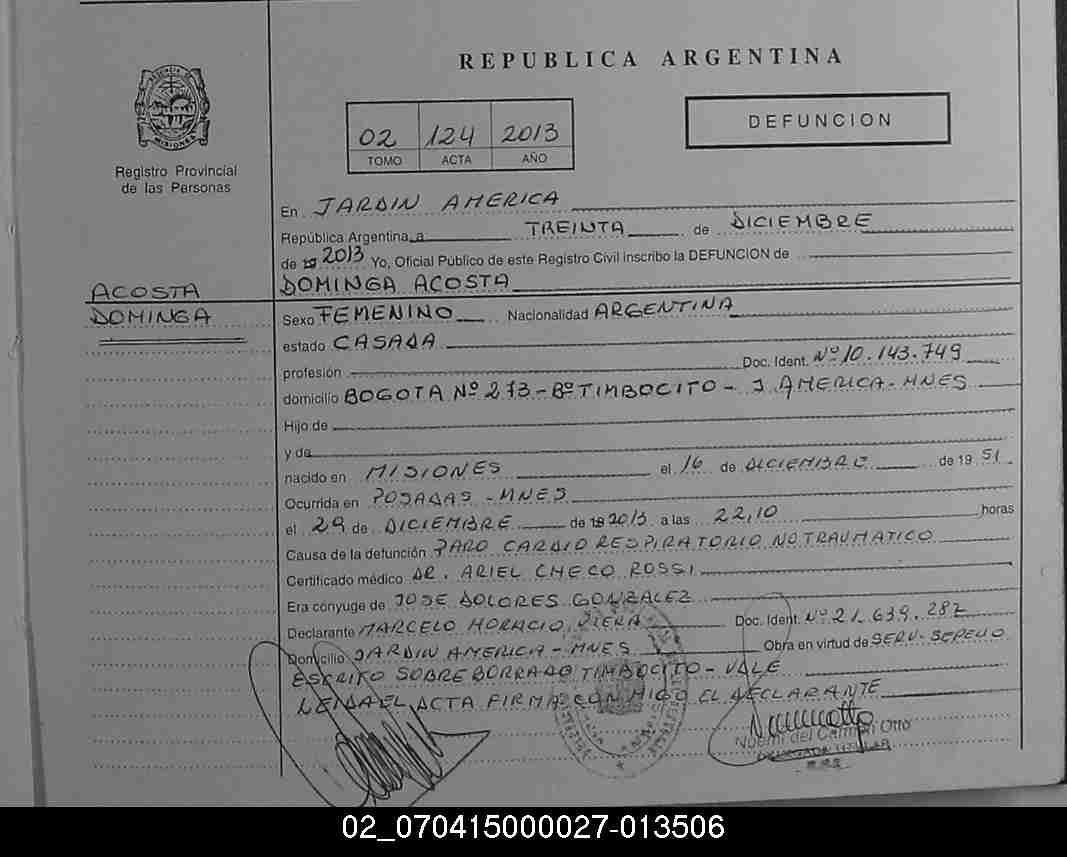 REPUBLICA ARGENTINA
02 124 2013
TOMO ACTA AÑO
DEFUNCION
Registro Provincial
de las Personas
En JARDIN AMERICA
República Argentina, a TREINTA de DICIEMBRE
de 19 2013 Yo, Oficial Público de este Registro Civil inscribo la DEFUNCION de
DOMINGA ACOSTA
ACOSTA
DOMINGA
Sexo FEMENINO Nacionalidad ARGENTINA
estado CASADA
profesión Doc. Ident. Nº 10.143.749
domicilio BOGOTA Nº 273 - Bº TIMBOCITO - J. AMERICA - MNES
Hijo de
y de
nacido en MISIONES el 16 de DICIEMBRE de 19 51
Ocurrida en POSADAS - MNES
el 29 de DICIEMBRE de 19 2013 a las 22,10 horas
Causa de la defunción PARO CARDIO RESPIRATORIO NO TRAUMATICO
Certificado médico DR. ARIEL CHECO ROSSI
Era cónyuge de JOSE DOLORES GONZALEZ
Declarante MARCELO HORACIO VIERA Doc. Ident. Nº 21.639.287
Domicilio JARDIN AMERICA - MNES Obra en virtud de SERV. SEPELIO
ESCRITO SOBREBORRADO TIMBOCITO - VALE
LEIDA EL ACTA FIRMA CONMIGO EL DECLARANTE
Noemi del Carmen Otto
DELEGADA TITULAR
02_070415000027-013506